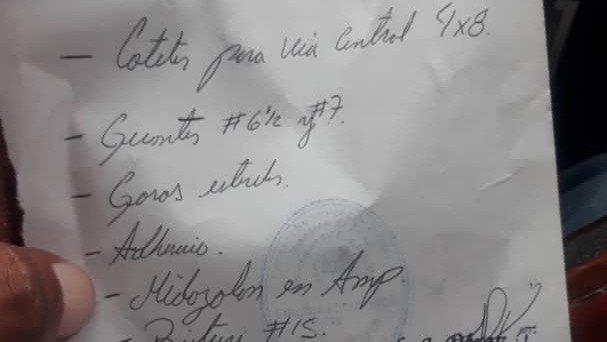 - Cateter para via central 4x8.
- Guantes #6½ y #7.
- Goros esteriles.
- Adhesivo.
- Midazolan en Amp.
- Bisturi #15.